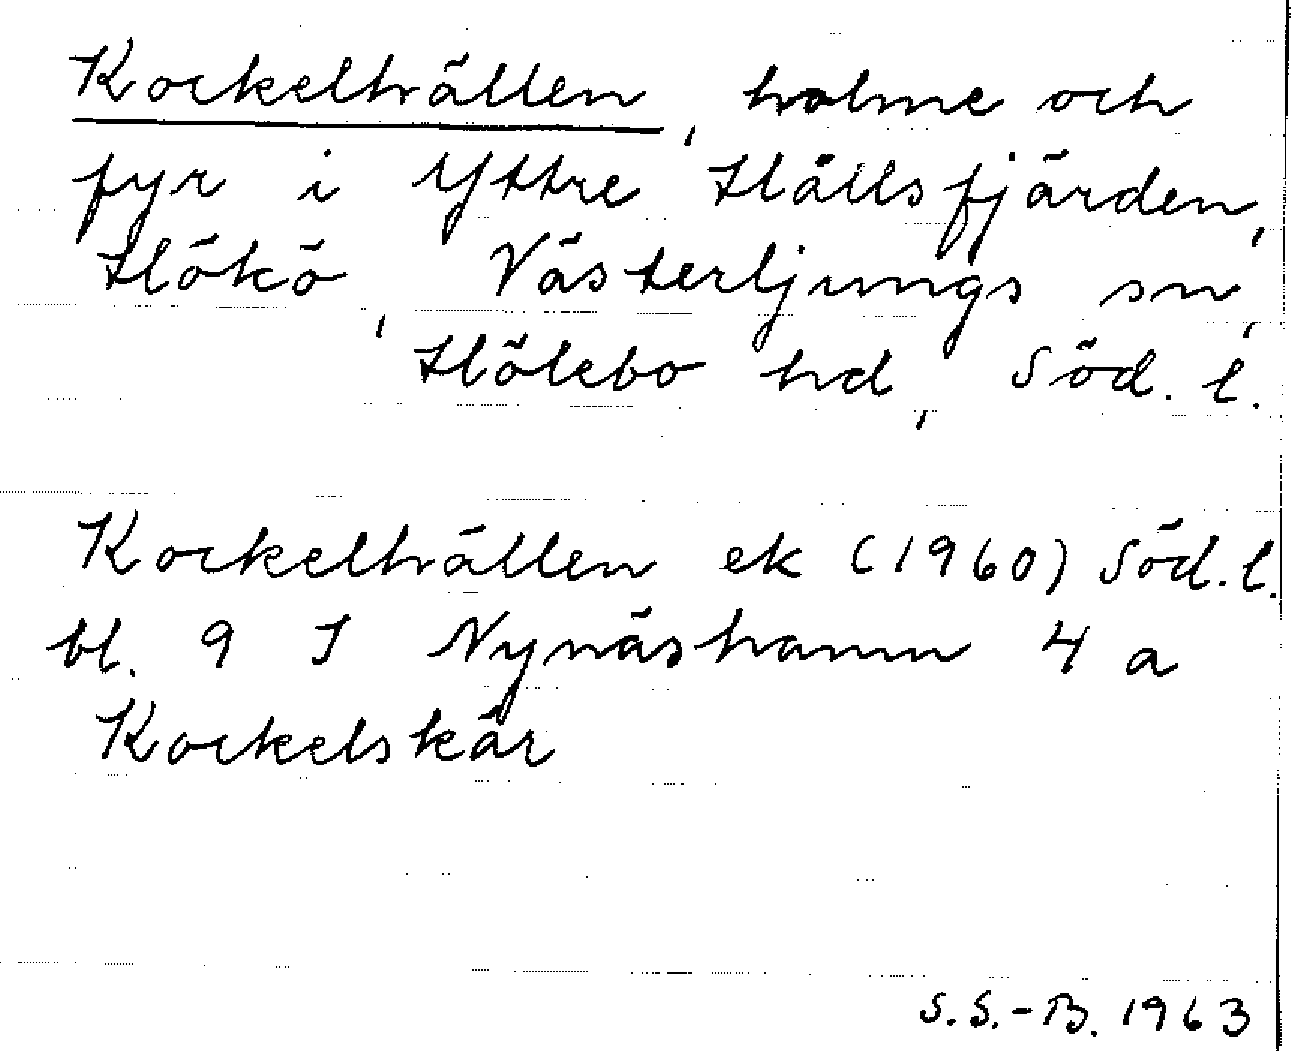 Kockelhällen, holme och
fyr i Yttre Hållsfjärden,
Hökö, Västerljungs sn,
Hölebo hd, Söd. l.
Kockelhällen ek (1960) Söd. l.
bl. 9 I Nynäshamn 4 a
Kockelskär
S. S.-B. 1963